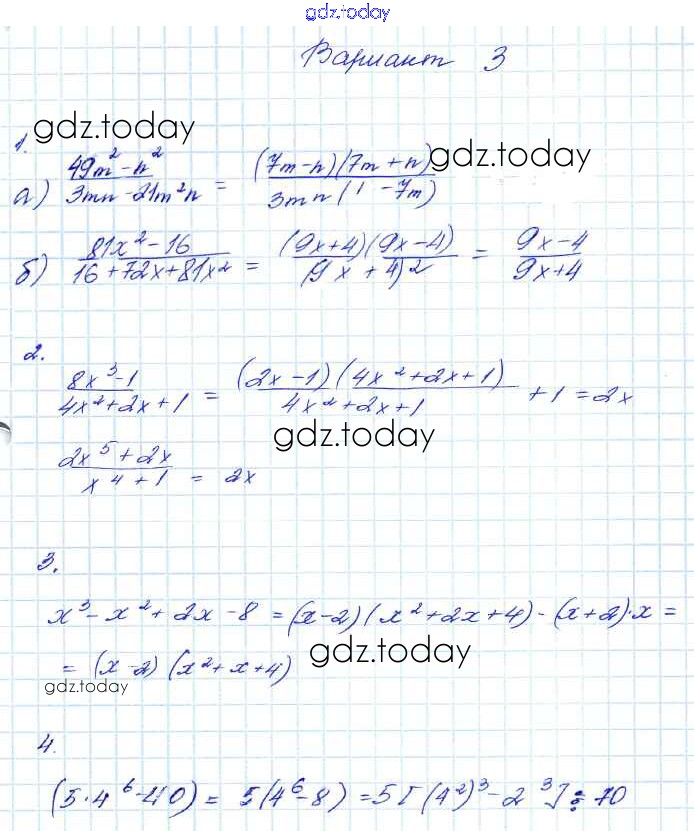 gdz.today
Вариант 3
1.
gdz.today
а) (49m² - n²)/(3mn - 21m²n) = ((7m - n)(7m + n))/(3mn(1 - 7m))
gdz.today
б) (81x² - 16)/(16 + 72x + 81x²) = ((9x + 4)(9x - 4))/((9x + 4)²) = (9x - 4)/(9x + 4)
2.
(8x³ - 1)/(4x² + 2x + 1) = ((2x - 1)(4x² + 2x + 1))/(4x² + 2x + 1) + 1 = 2x
gdz.today
(2x⁵ + 2x)/(x⁴ + 1) = 2x
3.
x³ - x² + 2x - 8 = (x - 2)(x² + 2x + 4) - (x + 2)·x =
= (x - 2)(x² + x + 4)
gdz.today
gdz.today
4.
(5·4⁶ - 40) = 5(4⁶ - 8) = 5[(4²)³ - 2³] ⋮ 70